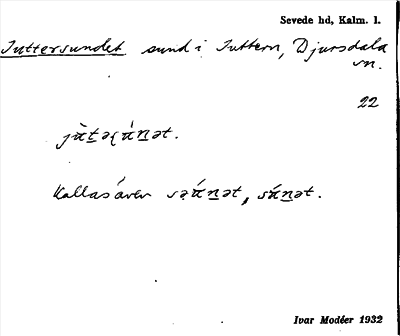 Sevede hd, Kalm. l.
Juttersundet sund i Juttern, Djursdala
sn.
22
Kallas även
Ivar Modéer 1932